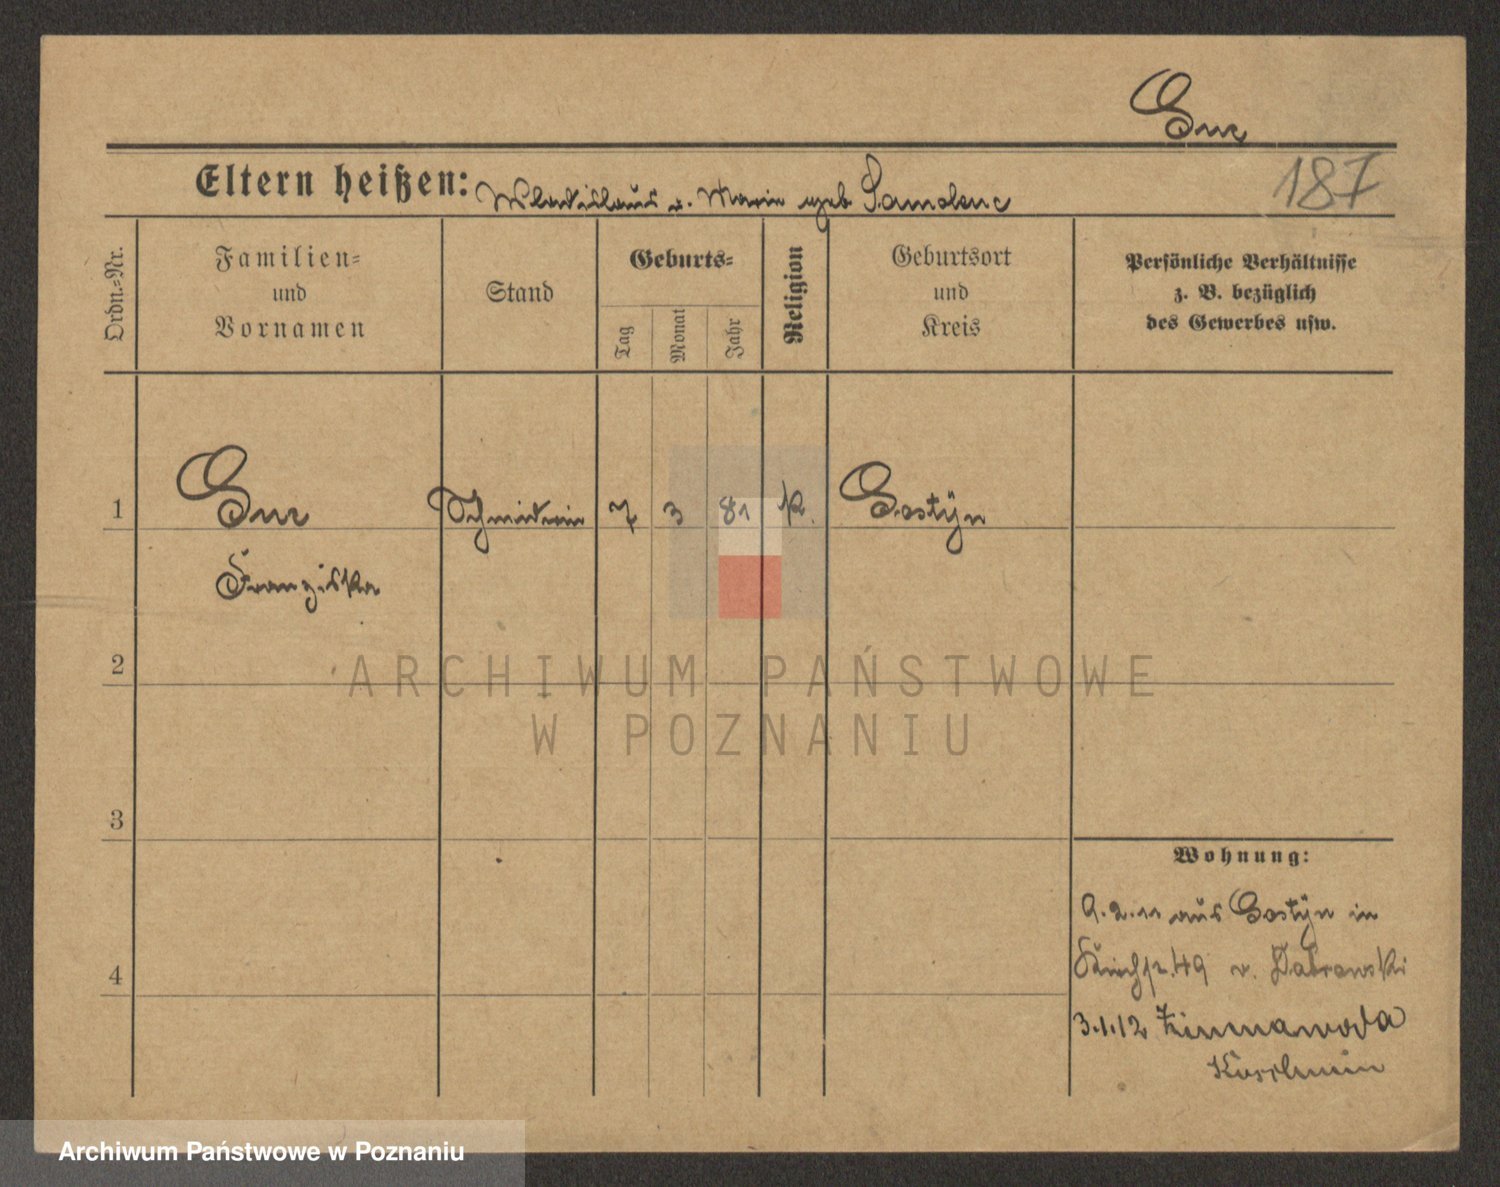 Gur
187
Eltern heißen: Wladislaus u. Marie geb Samolenc
Ordn.-Nr.
Familien-
und
Vornamen
Stand
Geburts-
Tag
Monat
Jahr
Religion
Geburtsort
und
Kreis
Persönliche Verhältnisse
z. B. bezüglich
des Gewerbes usw.
1
Gur
Schneiderin
7
3
81
K.
Gostÿn
Franziska
2
3
4
ARCHIWUM PAŃSTWOWE
W POZNANIU
Wohnung:
9.2.11 aus Gostÿn in
49 v. Dabrowski
3.1.12 Zimnawoda
Koschmin
Archiwum Państwowe w Poznaniu